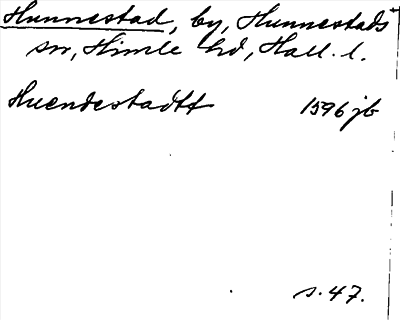 Hunnestad, by, Hunnestads
sn, Himle hd, Hall. l.
Huendestadtt 1596 jb
s. 47.